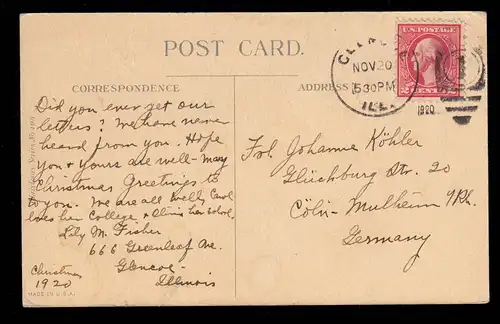 POST CARD.
CORRESPONDENCE
ADDRESS
Did you ever get our
letters? We have never
heard from you. Hope
you & yours are well - May
Christmas Greetings to
to you. We are all well, Carol
loves her College & her school.
Lily M. Fisher
666 Greenleaf Ave.
Glencoe
Illinois
Christmas
1920
MADE IN U.S.A.
NOV 20
530 PM
ILL.
1920
U.S. POSTAGE
2 CENTS 2
Frl. Johanne Köhler
Glücksburg Str. 20
Cöln-Mulheim a/Rh.
Germany